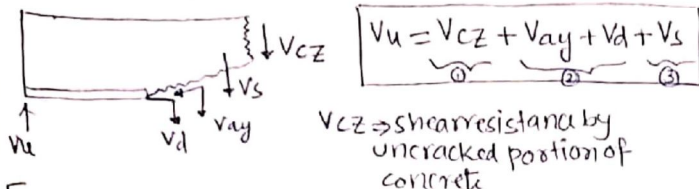 Vcz
Vs
Vay
Vd
Vu
Vu = Vcz + Vay + Vd + Vs
① ② ③
Vcz ⇒ shear resistance by
uncracked portion of
concrete